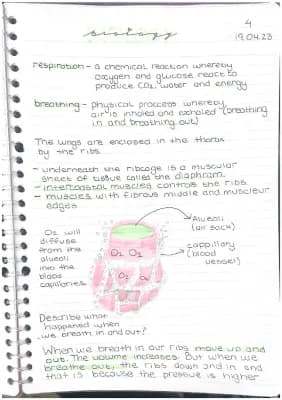 4
biology
19.04.23
respiration - a chemical reaction whereby
oxygen and glucose react to
produce CO2, water and energy
breathing - physical process whereby
air is inhaled and exhaled (breathing
in and breathing out)
The lungs are enclosed in the thorax
by the ribs
- underneath the ribcage is a muscular
sheet of tissue called the diaphragm.
- intercostal muscles controls the ribs
- muscles with fibrous middle and muscleur
edges
Alveoli
(air sack)
O2 will
diffuse
from the
alveoli
into the
blood
capillaries.
O2 O2
O2
cappillary
(blood
vessel)
Describe what
happened when
we breath in and out?
When we breath in our ribs move up and
out. The volume increases. But when we
breathe out, the ribs down and in and
that is because the pressure is higher